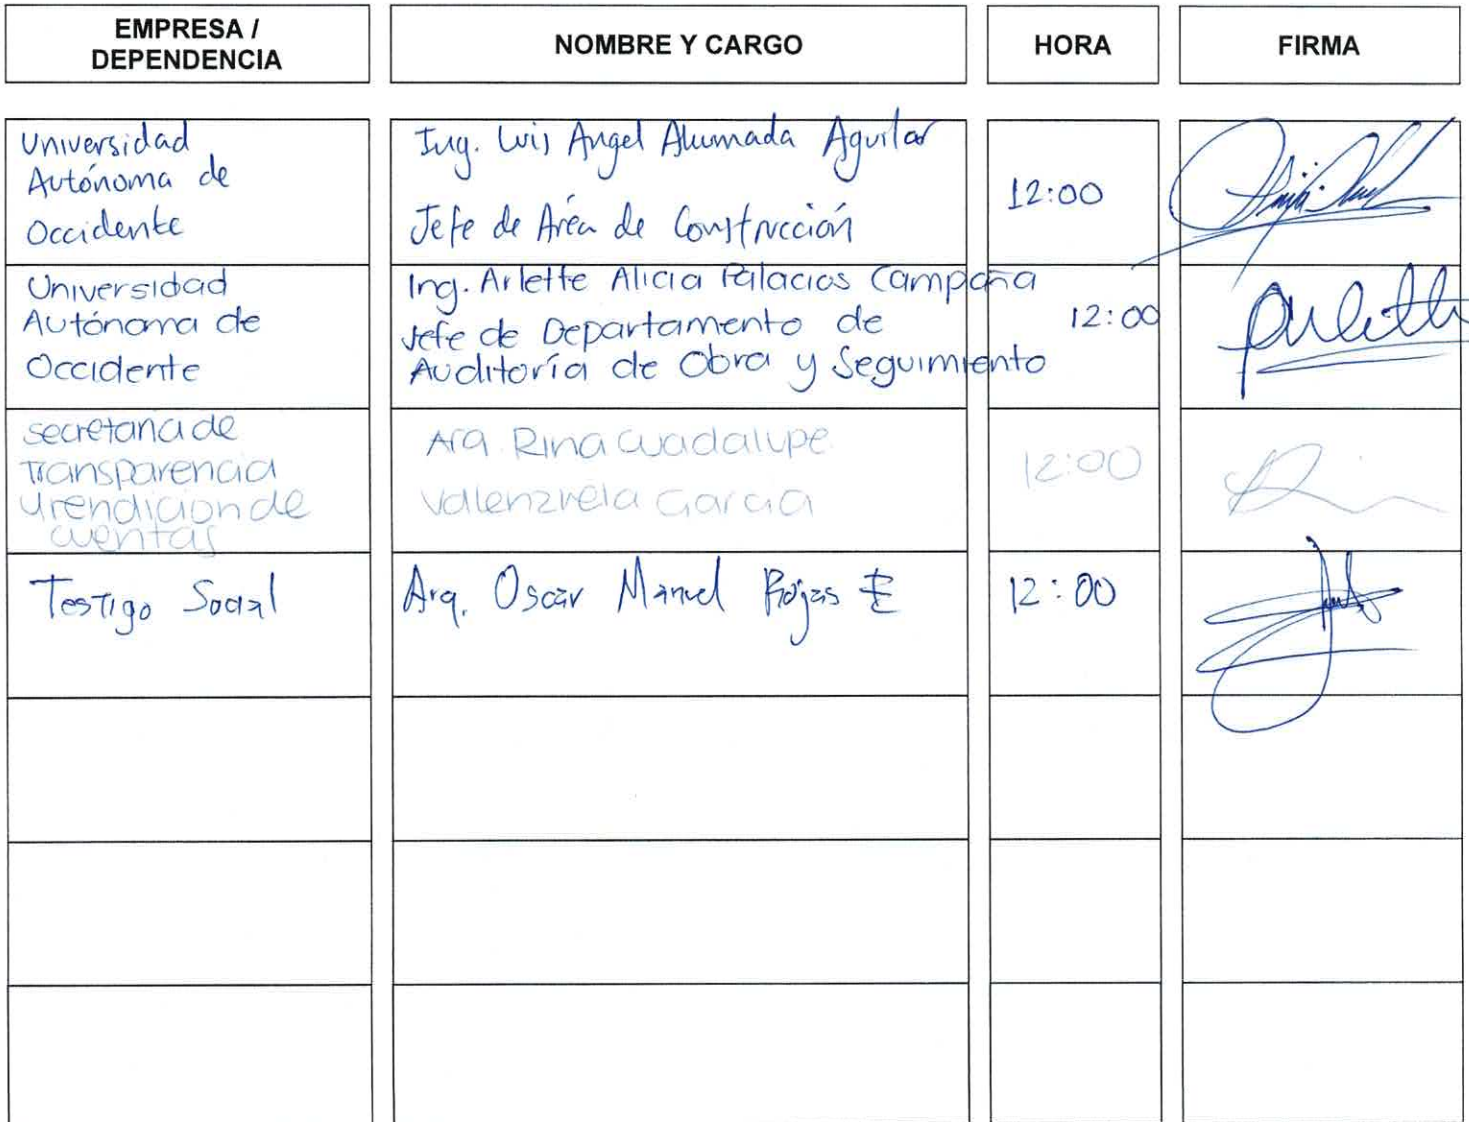 EMPRESA /
DEPENDENCIA
NOMBRE Y CARGO
HORA
FIRMA
Universidad
Autónoma de
Occidente
Ing. Luis Angel Ahumada Aguilar
Jefe de Área de Construcción
12:00
Universidad
Autónoma de
Occidente
Ing. Arlette Alicia Palacios Campaña
Jefe de Departamento de
Auditoría de Obra y Seguimiento
12:00
Arlette
secretaria de
Transparencia
y rendicion de
cuentas
Arq. Rina Guadalupe
Valenzuela Garcia
12:00
Testigo Social
Arq. Oscar Manuel Rojas E
12:00